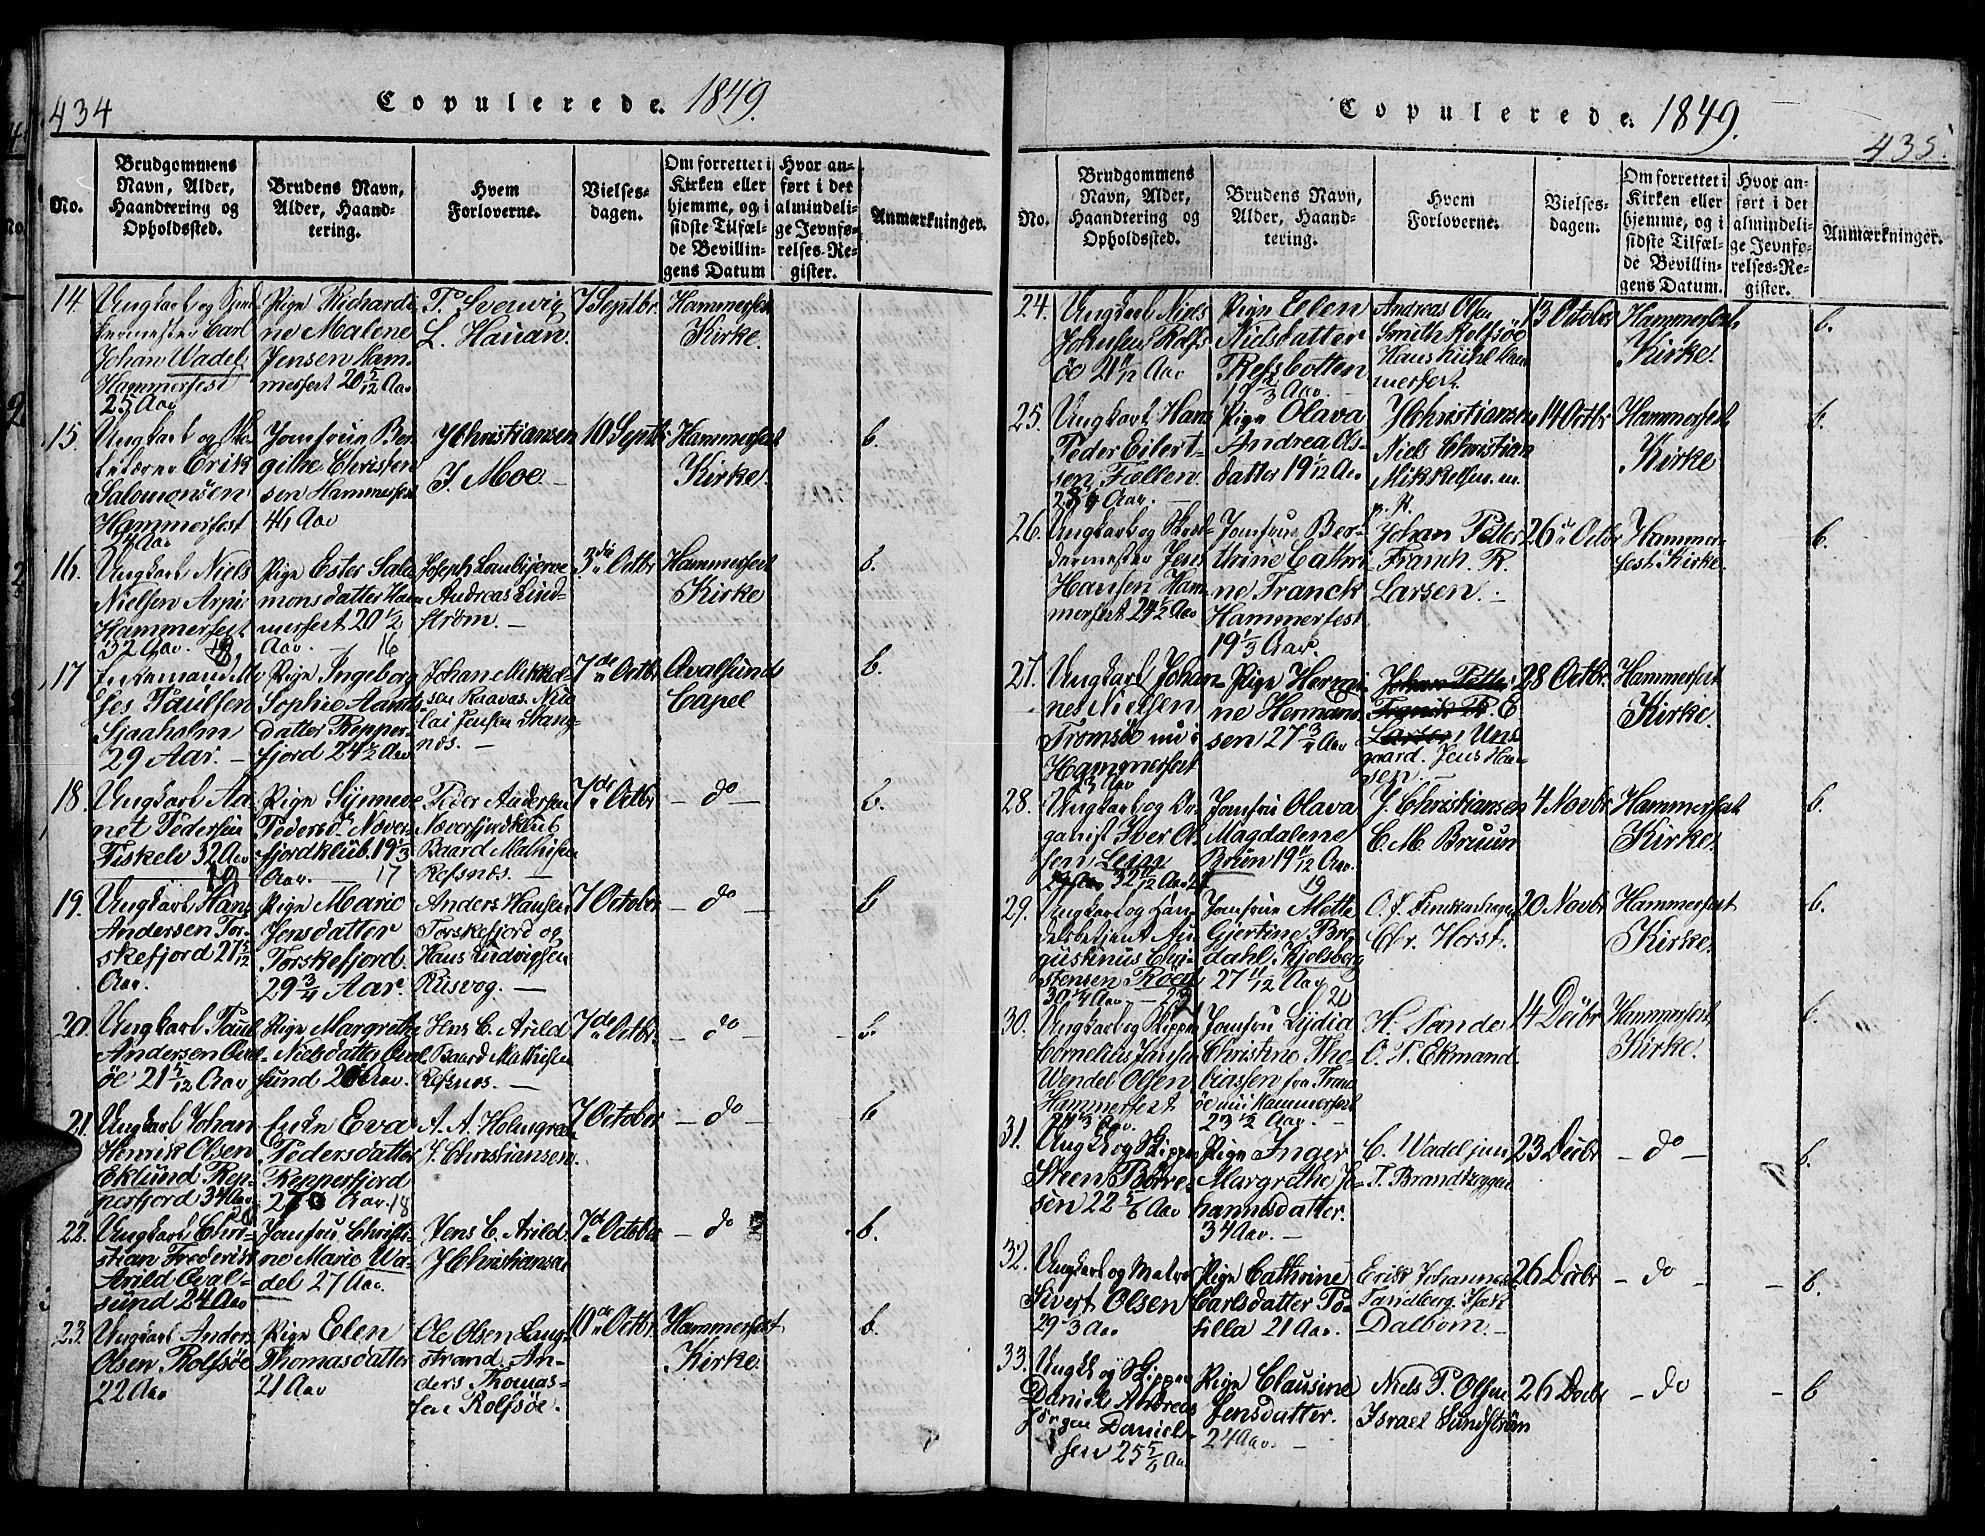 434
Copulerede. 1849.
No.
Brudgommens Navn, Alder, Haandtering og Opholdssted.
Brudens Navn, Alder, Haandtering.
Hvem Forloverne.
Vielsesdagen.
Om forrettet i Kirken eller hjemme, og i sidste Tilfælde Bevillingens Datum
Hvor anført i det almindelige Jevnførelses-Register.
Anmærkninger.
14.
Ungkarl og
Carl
Johan Wadel
Hammerfest
25 Aar
Pige Richardi-
ne Malene
Jensen Ham-
merfest 20 5/12 Aar
P. Sverwig
L. Hauan.
7 Septbr.
Hammerfest
Kirke.
15
Ungkarl og
Erik
Salomonsen
Hammerfest
Jomfrue Ber-
githe Christen
sen Hammerfest
41 Aar
J Christiansen
J. Moe.
10 Septbr
Hammerfest
Kirke.
b.
16.
Ungkarl Niels
Nielsen Arpi
Hammerfest
32 Aar.
Pige Ester Salo
monsdatter Ham
merfest 20 1/2
Aar. 16
Joseph
Andreas Lind-
strøm.
3die Octbr
Hammerfest
Kirke
b.
17
Enkemand
Paulsen
Sjaaholm
29 Aar.
Pige Ingeborg
Sophie
datter Repper-
fjord 24 1/2 Aar
Johan Mikkel-
sen Nico
lai Jensen Stang-
næs.
7de Octbr
Qvalsunds
Capel
b.
18.
Ungkarl
Pedersen
32 Aar
19
Pige Synneve
Pedersdr Naver-
fjordklub. 19 1/3
Aar. 17
Peder Andersen
Naverfjordklub
Baard Mathisen
Refsnæs.
7de Octbr
do
b.
19.
Ungkarl Hans
Andersen Tor-
skefjord 21 5/12
Aar.
Pige Marie
Jensdatter
Torskefjord.
29 3/4 Aar.
Anders Hansen
Torskefjord og
Hans Ludvigsen
Rusvog.
7 October
do
b
20.
Ungkarl Paul
Andersen Qval-
öe 21 5/12 Aar
Pige Margrethe
Nielsdatter Qval
sund 20 Aar.
Jens C. Arild
Baard Mathisen
Refsnæs.
7de Octbr.
do
b.
21.
Ungkarl Johan
Henrik Olsen
Eklund Rep-
perfjord 34 Aar
20
Enke Eva
Pedersdatter
Repperfjord
Aar. 18
A. A. Holmgreen
J. Christiansen
7 October
do
b
22.
Ungkarl Chri-
stian Frederik
Arild Qval-
sund 24 Aar
Jomfru Christi-
ne Marie Wa-
del 27 Aar.
Jens C. Arild.
J Christiansen
7de October
do
b.
23.
Ungkarl Anders
Olsen Rolfsöe
22 Aar
Pige Elen
Thomasdatter
21 Aar
Ole Olsen Lang-
strand. An-
ders Thomas-
sen Rolfsöe.
10de Octbr.
Hammerfest
Kirke.
b.
Copulerede. 1849.
435.
No.
Brudgommens Navn, Alder, Haandtering og Opholdssted.
Brudens Navn, Alder, Haandtering.
Hvem Forloverne.
Vielsesdagen.
Om forrettet i Kirken eller hjemme, og i sidste Tilfælde Bevillingens Datum.
Hvor anført i det almindelige Jevnførelses-Register.
Anmærkninger.
24.
Ungkarl Niels
Johnsen Rolfs
öe 21 11/12 Aar
Pige Elen
Nielsdatter
Refsbotten
19 2/3 Aar.
Andreas Olsen
Smith Rolfsöe
Hans Kühl Ham
merfest.
13 October
Hammerfest
Kirke.
b.
25.
Ungkarl Hans
Peder Eilert-
sen
Aar.
Pige Olava
Andrea Ols-
datter 19 1/12 Aar
J Christiansen
Niels Christian
Mikkelsen. m.
p. P.
14 Octbr
Hammerfest
Kirke
b.
26.
Ungkarl og
Jens
Hansen Ham-
merfest 24 1/2 Aar
Jomfrue Ber-
thine Cathri
ne Franck
Hammerfest
19 1/3 Aar.
Johan Petter
Franck R.
Larsen.
26 Octbr
Hammer-
fest Kirke.
b.
27.
Ungkarl Johan-
nes Nielsen
Tromsöe nu i
Hammerfest
Aar
Pige Hermi-
ne Herman-
sen 27 3/4 Aar
E
Uns
gaard. Jens Han-
sen
28 Octbr.
Hammerfest
Kirke.
28.
Ungkarl og Or-
ganist Iver Ol-
sen Leine
32 11/12 Aar
Jomfru Olava
Magdalene
Brun 19 11/12 Aar.
19
J. Christiansen
C. M. Bruun
4 Novbr
Hammerfest
Kirke.
b.
29.
Ungkarl og Han-
delsbetjent Au-
gustinus Chri-
stensen
30 1/4 Aar.
Jomfrue Mette
Gjertine Bre
dahl Kjelsberg
27 4/12 Aar
20
O. J. Finckenhagen
Chr. Horst.
20 Novbr
Hammerfest
Kirke.
b.
30.
Ungkarl og Skipper
Cornelius Johnsen
Wendel Olsen
Hammerfest
Aar.
Jomfru Lydia
Christine Tho-
biassen fra Trom
öe nu i Hammerfest
23 1/2 Aar.
H. Sande
O. P. Ekmand.
14 Decbr
Hammerfest
Kirke.
b.
31.
Ungk. og Skipper
Steen Børre-
sen 22 5/6 Aar
Pige Inger
Margrethe Jo-
hannisdatter.
34 Aar.
C. Wadel jun
T. Brandtzeggen
23 Decbr
do
b.
32.
Ungkarl og Matros
Sivert Olsen
29 Aar
Pige Cathrine
Carlsdatter To-
filla 21 Aar.
Erik Johannes
Tandberg. Isak
Dalbom.
26 Decbr
do
b.
33.
Ungk. og Skipper
Daniel Andreas
Jørgen Daniel-
sen 25 5/6 Aar
Pige Clausine
Jensdatter.
24 Aar.
Niels P. Olsen
Israel Sundström
26 Decbr
do
b